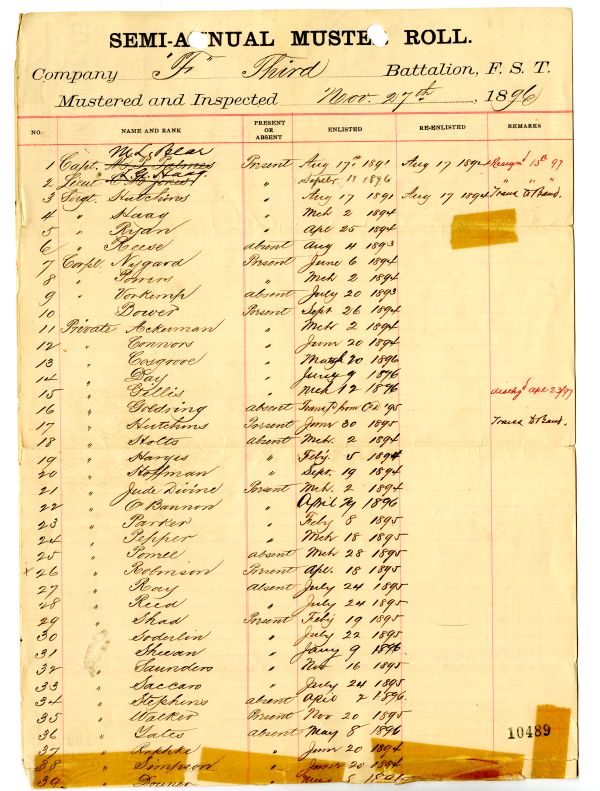 SEMI-ANNUAL MUSTER ROLL.
Company "F" Third Battalion, F. S. T.
Mustered and Inspected Nov. 27th, 1896
NO. NAME AND RANK PRESENT OR ABSENT ENLISTED RE-ENLISTED REMARKS
M. L. Bear
1 Capt. Present Aug 17th 1891 Aug 17 1894 Resign'd 15th 97
2 Lieut " Septbr 11 1896 " "
3 Sergt. Hutchins " Aug 17 1891 Aug 17 1894 Trans to Band.
4 " Haag " Mch 2 1894
5 " Ryan " Apr 25 1894
6 " Reese absent Aug 4 1893
7 Corpl. Nygard Present June 6 1894
8 " Powers " Mch 2 1894
9 " Vorkemp absent July 20 1893
10 " Bower Present Sept 26 1894
11 Private Ackerman " Mch 2 1894
12 " Connors " June 20 1894
13 " Cosgrove " March 20 1896
14 " Day " 9 1896
15 " Gillis " Mch 12 1896 dischg'd Apr 23/97
16 " Goldring absent Transf'd from Co D '95
17 " Hutchins Present June 30 1895 Trans to Band.
18 " Holts absent Mch. 2 1894
19 " Harges " Feby 5 1894
20 " Hoffman " Sept. 19 1894
21 " Jude Divine Present Mch. 2 1894
22 " O'Bannon " April 1896
23 " Parker " Feby 8 1895
24 " Pepper " Mch 18 1895
25 " Powell absent Mch 28 1895
x 26 " Robinson Present Apl. 18 1895
27 " Ray absent July 24 1895
28 " Reed " July 24 1895
29 " Shad Present Feby 19 1895
30 " Soderlin " July 22 1895
31 " Sheean " Jany 9 1896
32 " Saunders " Nov 16 1895
33 " Saccaro " July 24 1895
34 " Stephens absent April 2 1896
35 " Walker Present Nov 20 1895
36 " Yales absent May 8 1896
10489
37 " " June 20 1894
38 " Simpson " 20 1894
39 " Downer " 8